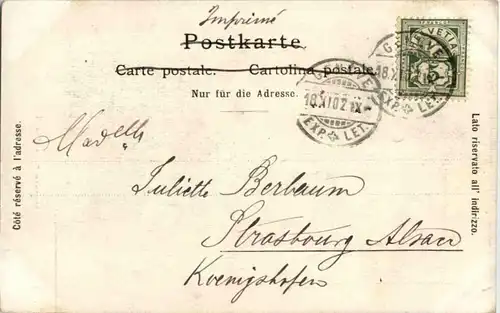 Imprimé
Postkarte
Carte postale. Cartolina postale.
Nur für die Adresse.
HELVETIA
5
GENÈVE
18.XI.02.IX
EXP. LET.
GENÈVE
18.X
EXP. LET.
Côté réservé à l'adresse.
Lato riservato all' indirizzo.
Madelle
Juliette Berbaum
Strasbourg Alsace
Koenigshofen